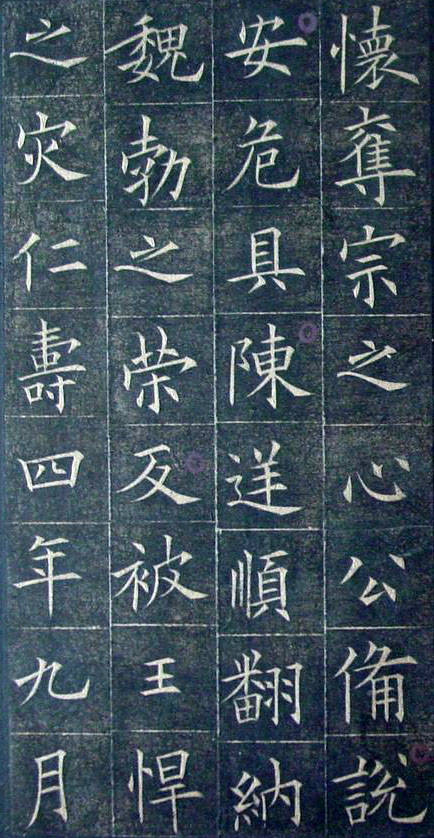 懷奪宗之心公备說
安危具陳逆順翻納
魏勃之荣反被王悍
之灾仁壽四年九月